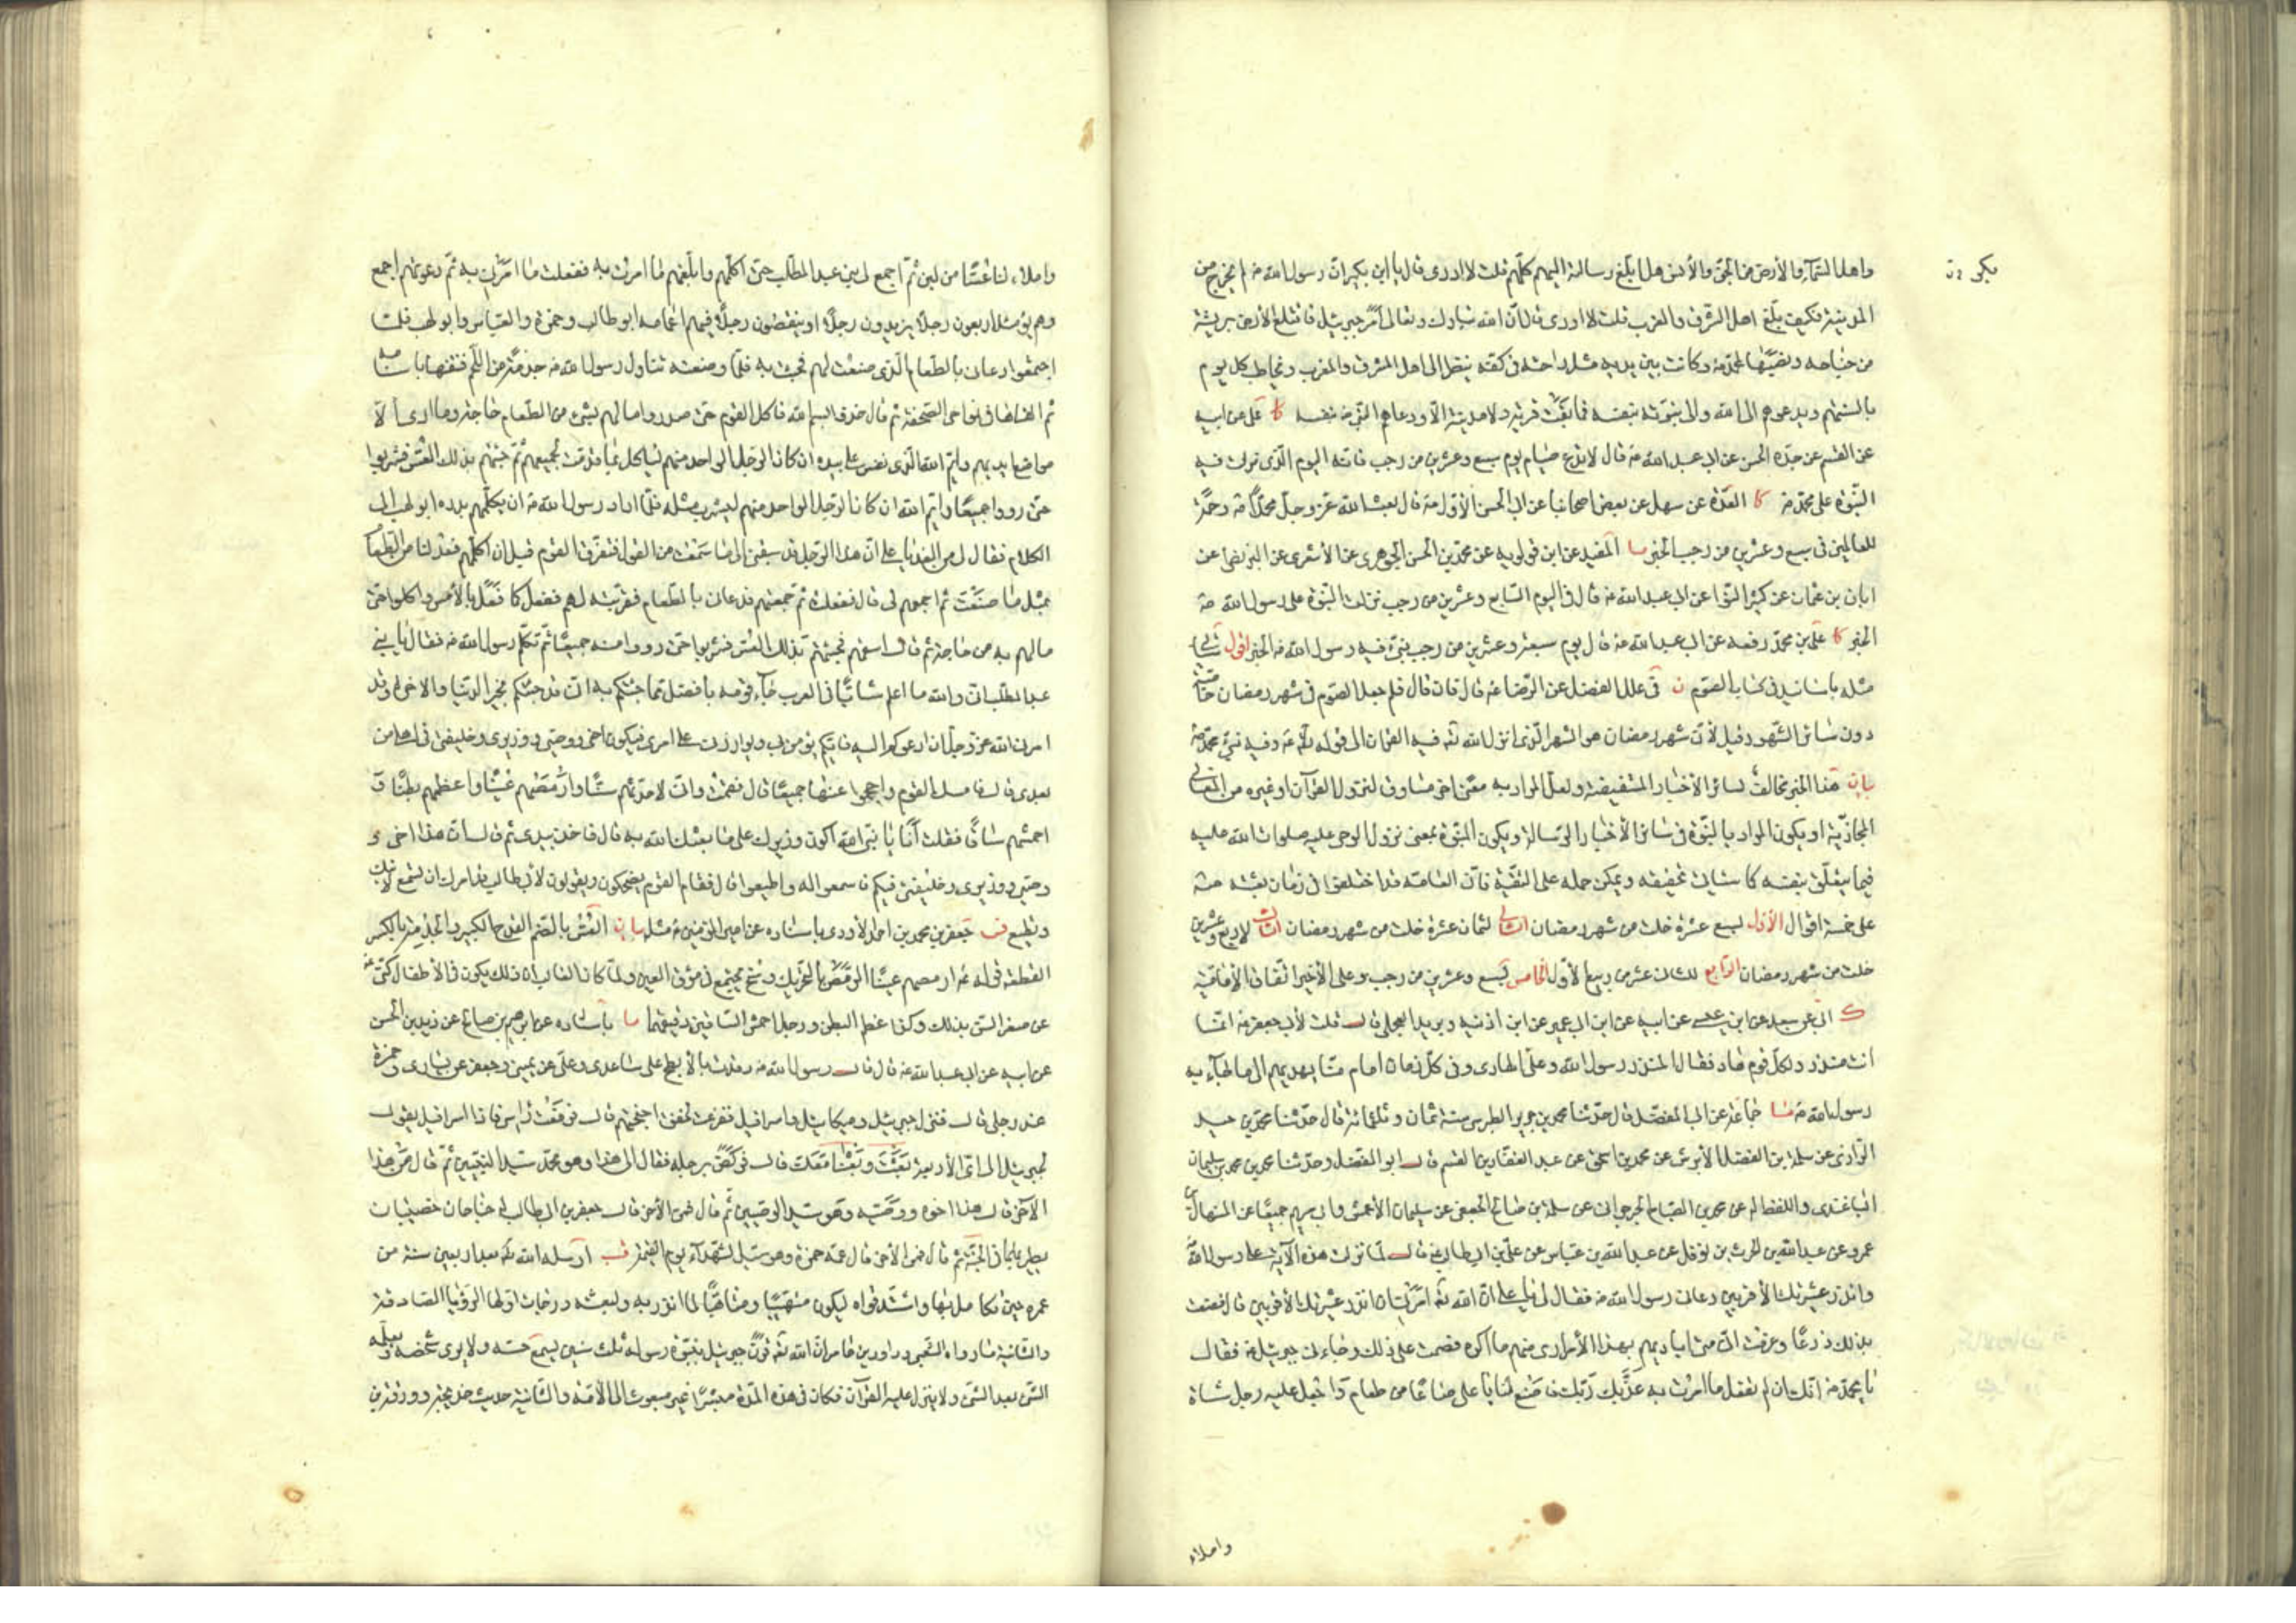 واهل السمآء والأرض من الجن والأنس هل بلغ رسالته اليهم كلهم قلت لا ادرى قال يا ابن بكير ان رسول الله ص لم يخرج من
المدينة فكيف بلغ اهل الشرق والغرب قلت لا ادرى قال ان الله تبارك وتعالى أمر جبرئيل فاقتلع الأرض بريشة
من جناحه ونصبها لمحمد ص وكانت بين يديه مثل راحته فى كفه ينظر الى اهل المشرق والمغرب ويخاطب كل يوم
بالسنتهم ويدعوهم الى الله والى نبوته بنفسه فما بقيت قرية ولا مدينة الا ودعاهم النبى ص بنفسه كا على عن ابيه
عن القسم عن جده الحسن عن ابى عبد الله ع قال لا تدع صيام يوم سبع وعشرين من رجب فانه اليوم الذى نزلت فيه
النبوة على محمد ص كا العدة عن سهل عن بعض اصحابنا عن ابى الحسن الأول ع قال بعث الله عز وجل محمدا ص رحمة
للعالمين فى سبع وعشرين من رجب الخبر ما المفيد عن ابن قولويه عن محمد بن الحسن الجوهرى عن الأشعرى عن البزنطى عن
ابان بن عثمان عن كثير النوا عن ابى عبد الله ع قال فى اليوم السابع وعشرين من رجب نزلت النبوة على رسول الله ص
الخبر كا على بن محمد رفعه عن ابى عبد الله ع قال يوم سبعة وعشرين من رجب نبئ فيه رسول الله ص الخبر اقول سيأتى
مثله باسانيد فى كتاب الصوم ن فى علل الفضل عن الرضا ع قال فان قال فلم جعل الصوم فى شهر رمضان خاصة
دون سائر الشهور قيل لأن شهر رمضان هو الشهر الذى انزل الله تع فيه القران الى قوله ع وفيه نبئ محمد ص
بيان هذا الخبر مخالف لسائر الأخبار المستفيضة ولعل المراد به معنى اخر مساوق لنزول القرآن او غيره من المعانى
المجازية او يكون المراد بالنبوة فى سائر الأخبار الرسالة ويكون النبوة بمعنى نزول الوحى عليه صلوات الله عليه
فيما يتعلق بنفسه كما سياتى تحقيقه ويمكن حمله على التقية فان العامة قد اختلفوا فى زمان بعثته ص
على خمسة اقوال الأول لسبع عشرة خلت من شهر رمضان الثانى لثمان عشرة خلت من شهر رمضان الثالث لاربع وعشرين
خلت من شهر رمضان الرابع للثانى عشر من ربيع الأول الخامس لسبع وعشرين من رجب وعلى الأخير اتفاق الأمامية
ك ابى عن سعد عن ابن عيسى عن ابيه عن ابن ابى عمير عن ابن اذينه وبريد العجلى قال قلت لأبى جعفر ع انما
انت منذر ولكل قوم هاد فقال المنذر رسول الله وعلى الهادى وفى كل زمان امام منا يهديهم الى ما جآء به
رسول الله ص ما جماعة عن ابى المفضل قال حدثنا محمد بن جرير الطبرى سنة ثمان وثلثمائة قال حدثنا محمد بن حميد
الرازى عن سلمة بن الفضل الأبرش عن محمد بن اسحق عن عبد الغفار بن القسم قال ابو المفضل وحدثنا محمد بن محمد بن سليمان
الباغندى واللفظ له عن محمد بن الصباح الجرجرائى عن سلمة بن صالح الجعفى عن سليمان الأعمش وابى مريم جميعا عن المنهال بن
عمرو عن عبد الله بن الحرث بن نوفل عن عبد الله بن عباس عن على بن ابى طالب ع قال لما نزلت هذه الآية على رسول الله ص
وانذر عشيرتك الأقربين دعانى رسول الله ص فقال لى يا على ان الله تع امرنى ان انذر عشيرتك الأقربين قال فضقت
بذلك ذرعا وعرفت انى متى اباديهم بهذا الأمر ارى منهم ما اكره فصمت على ذلك وجاءنى جبرئيل ع فقال
يا محمد ص انك ان لم تفعل ما امرت به عذبك ربك فاصنع لنا يا على صاعا من طعام واجعل عليه رجل شاة
واملاء
واملاء لنا عسا من لبن ثم اجمع لى بنى عبد المطلب حتى اكلمهم وابلغهم ما امرت به ففعلت ما امرنى به ثم دعوتهم اجمع
وهم يومئذ اربعون رجلا يزيدون رجلا او ينقصون رجلا فيهم اعمامه ابو طالب وحمزة والعباس وابو لهب فلما
اجتمعوا دعانى بالطعام الذى صنعت لهم فجئت به فلما وضعته تناول رسول الله ص جذمة من اللحم فنتفها باسنانه
ثم القاها فى نواحى الصحفة ثم قال خذوا بسم الله فاكل القوم حتى صدروا ما لهم بشئ من الطعام حاجة وما ارى الا
مواضع ايديهم وايم الله الذى نفس على بيده ان كان الرجل الواحد منهم لياكل ما قدمت لجميعهم ثم جئتهم بذلك العس فشربوا
حتى رووا جميعا وايم الله ان كان الرجل الواحد منهم ليشرب مثله فلما اراد رسول الله ص ان يكلمهم بدره ابو لهب الى
الكلام فقال لى من الغد يا على ان هذا الرجل قد سبقنى الى ما سمعت من القول فتفرق القوم قبل ان اكلمهم فعد لنا من الطعام
بمثل ما صنعت ثم اجمعهم لى قال ففعلت ثم جمعتهم فدعانى بالطعام فقربته لهم ففعل كما فعل بالأمس واكلوا حتى
ما لهم به من حاجة ثم قال اسقهم فجئتهم بذلك العس فشربوا حتى رووا منه جميعا ثم تكلم رسول الله ص فقال يا بنى
عبد المطلب انى والله ما اعلم شابا فى العرب جآء قومه بافضل مما جئتكم به انى قد جئتكم بخير الدنيا والاخرة وقد
امرنى الله عز وجل ان ادعوكم اليه فايكم يؤمن بى ويوازرنى على امرى فيكون اخى ووصيى ووزيرى وخليفتى فى اهلى من
بعدى قال فامسك القوم واحجموا عنها جميعا قال فقمت وانى لاحدثهم سنا وارمصهم عينا واعظمهم بطنا و
احمشهم ساقا فقلت انا يا نبى الله اكون وزيرك على ما بعثك الله به قال فاخذ بيدى ثم قال ان هذا اخى و
وصيى ووزيرى وخليفتى فيكم فاسمعوا له واطيعوا قال فقام القوم يضحكون ويقولون لأبى طالب قد امرك ان تسمع لابنك
وتطيع فر جعفر بن محمد بن احمد الأودى باسناده عن امير المؤمنين ع مثله بيان العس بالضم القدح الكبير والجذمة بالكسر
القطعة قوله ع ارمصهم عينا الرمص بالتحريك وسخ يجتمع فى موق العين ولما كان الغالب ان ذلك يكون فى الأطفال كنى ع
عن صغر السن بذلك وكذا عظم البطن ورجل احمش الساقين دقيقهما ما باسناده عن ابراهيم بن صالح عن زيد بن الحسن
عن ابيه عن ابى عبد الله ع قال قال رسول الله ص رقدت بالأبطح على ساعدى وعلى عن يمينى وجعفر عن يسارى وحمزة
عند رجلى قال فنزل جبرئيل وميكائيل واسرافيل ففزعت لخفق اجنحتهم قال فرفعت راسى فاذا اسرافيل يقول
لجبرئيل الى اى الأربعة بعثت وبعثنا معك قال فركض برجله فقال الى هذا وهو محمد سيد النبيين ثم قال من هذا
الآخر قال هذا اخوه ووصيه وهو سيد الوصيين ثم قال فمن الآخر قال جعفر بن ابى طالب له جناحان خضيبان
يطير بهما فى الجنة ثم قال فمن الآخر قال عمه حمزة وهو سيد الشهدآء يوم القيمة قب ارسله الله تع بعد اربعين سنة من
عمره حين تكامل بها واشتد قواه ليكون متهيبا ومتاهبا لما انذر به ولبعثته درجات اولها الرؤيا الصادقة
والثانية ما رواه الشعبى وداود بن عامر ان الله تع قرن جبرئيل بنبوة رسوله ثلث سنين يسمع حسه ولا يرى شخصه ويعلمه
الشئ بعد الشئ ولا ينزل عليه القرآن فكان فى هذه المدة مبشرا غير مبعوث الى الأمة والثالثة حديث خديجة وورقة بن